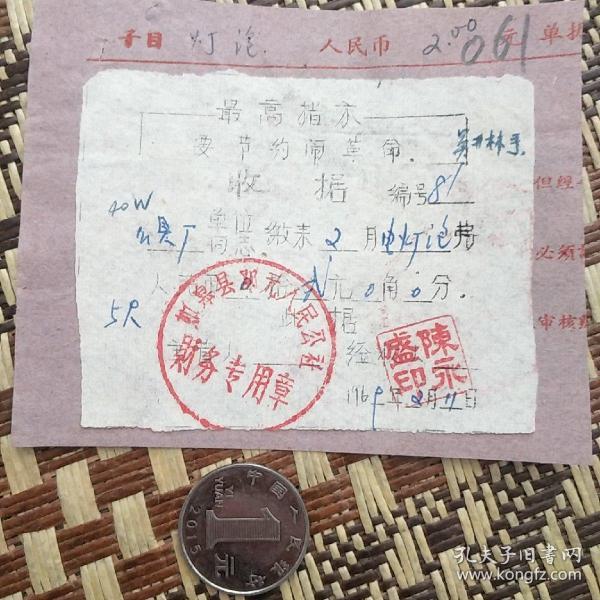 子目 灯泡 人民币 2.00 元 061 单据
最高指示
要节约闹革命.
收据 编号81
40W
工具厂 单位 同志 缴来 2 月电灯泡费
人民币 0 拾 贰元 0角 0分.
5只 此据
经
1969年2月11日
如皋县 人民公社
财务专用章
陳永盛印
但经
必须
审核
中国人民银行
YI YUAN
1元
2015
孔夫子旧书网
www.kongfz.com